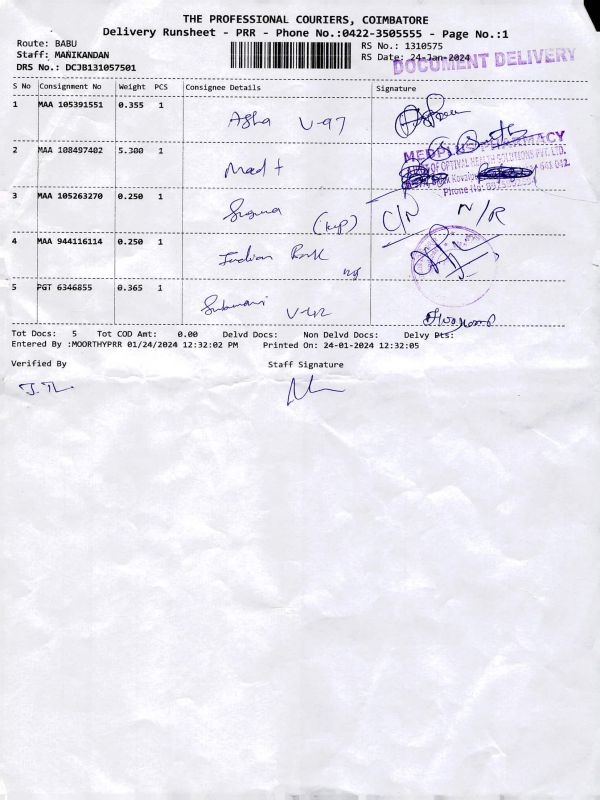 THE PROFESSIONAL COURIERS, COIMBATORE
Delivery Runsheet - PRR - Phone No.:0422-3505555 - Page No.:1
Route: BABU
RS No.: 1310575
Staff: MANIKANDAN
RS Date: 24-Jan-2024
DRS No.: DCJB131057501
DOCUMENT DELIVERY
S No Consignment No Weight PCS Consignee Details Signature
1 MAA 105391551 0.355 1 Asha V-97
2 MAA 108497402 5.300 1 Med +
MEDPLUS PHARMACY
OPTIVAL HEALTH SOLUTIONS PVT. LTD.
3 MAA 105263270 0.250 1 Suguna C/N N/R
4 MAA 944116114 0.250 1 Indian Bank
5 PGT 6346855 0.365 1 Sukumari V-42
Tot Docs: 5 Tot COD Amt: 0.00 Delvd Docs: Non Delvd Docs: Delvy Pts:
Entered By :MOORTHYPRR 01/24/2024 12:32:02 PM Printed On: 24-01-2024 12:32:05
Verified By Staff Signature